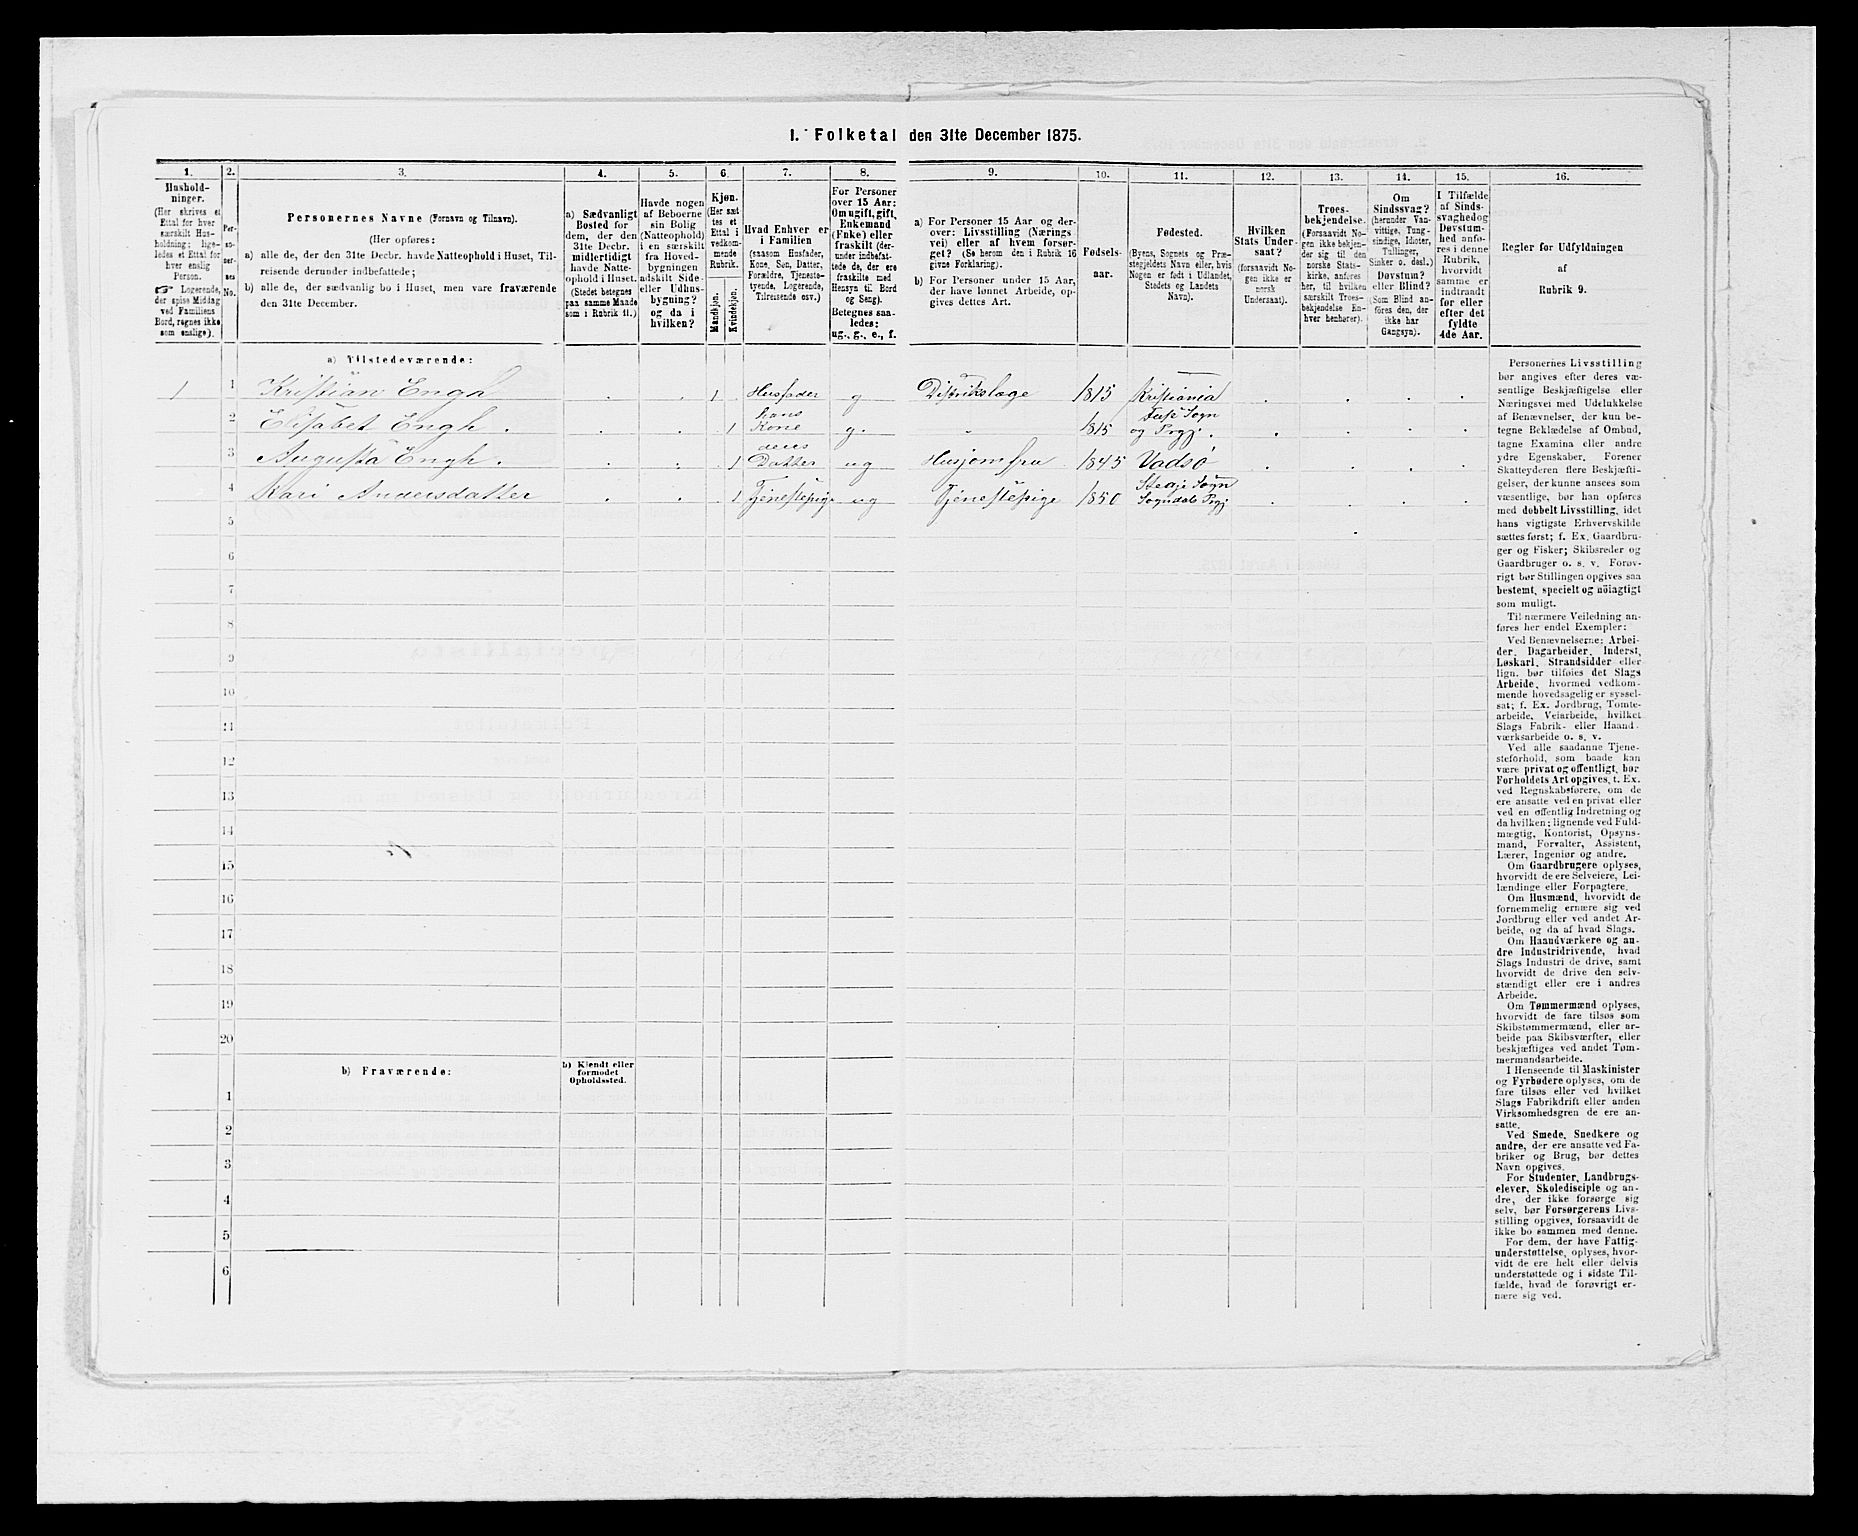 1. Folketal den 31te December 1875.
1.
Hushold-
ninger.
(Her skrives et
Ettal for hver
særskilt Hus-
holdning; lige-
ledes et Ettal for
hver enslig
Person.
☞ Logerende,
der spise Middag
ved Familiens
Bord, regnes ikke
som enslige).
2.
Per-
so-
ner-
nes
No.
3.
Personernes Navne (Fornavn og Tilnavn).
(Her opføres:
a) alle de, der den 31te Decbr. havde Natteophold i Huset, Til-
reisende derunder indbefattede;
b) alle de, der sædvanlig bo i Huset, men vare fraværende
den 31te December.
4.
a) Sædvanligt
Bosted for
dem, der den
31te Decbr.
midlertidigt
havde Natte-
ophold i Huset.
(Stedet betegnes
paa samme Maade
som i Rubrik 11.)
5.
Havde nogen
af Beboerne
sin Bolig
(Natteophold)
i en særskilt
fra Hoved-
bygningen
adskilt Side-
eller Udhus-
bygning?
og da i
hvilken?
6.
Kjøn.
(Her sæt
tes et
Ettal i
vedkom-
mende
Rubrik.
Mandkjøn.
Kvindekjøn.
7.
Hvad Enhver er
i Familien
(saasom Husfader,
Kone, Søn, Datter,
Forældre, Tjeneste-
tyende, Logerende,
Tilreisende osv.)
8.
For Personer
over 15 Aar:
Om ugift, gift,
Enkemand
(Enke) eller
fraskilt (der-
under indbefat-
tede de, der ere
fraskilte med
Hensyn til Bord
og Seng).
Betegnes saa-
ledes:
ug., g., e., f.
9.
a) For Personer 15 Aar og der-
over: Livsstilling (Nærings
vei) eller af hvem forsør-
get? (Se herom den i Rubrik 16
givne Forklaring).
b) For Personer under 15 Aar,
der have lønnet Arbeide, op-
gives dettes Art.
10.
Fødsels-
aar.
11.
Fødested.
(Byens, Sognets og Præ-
stegjeldets Navn eller, hvis
Nogen er født i Udlandet,
Stedets og Landets
Navn).
12.
Hvilken
Stats Under-
saat?
(forsaavidt No-
gen ikke er
norsk
Undersaat).
13.
Troes-
bekjendelse.
(Forsaavidt No-
gen ikke bekjen-
der sig til den
norske Stats-
kirke, anføres
her, til hvilken
særskilt Troes-
bekjendelse En-
hver henhører).
14.
Om
Sindssvag?
(herunder Van-
vittige, Tung-
sindige, Idioter,
Tullinger,
Sinker o. desl.)
Døvstum?
eller Blind?
(Som Blind an-
føres den, der
ikke har
Gangsyn).
15.
I Tilfælde
af Sinds-
svaghed og
Døvstum-
hed anfø-
res i denne
Rubrik,
hvorvidt
samme er
indtraadt
før eller
efter det
fyldte
4de Aar.
16.
Regler for Udfyldningen
af
Rubrik 9.
a) Tilstedeværende:
1 1 Kristian Engh . . 1 Husfader g Distriktslæge 1815 Kristiania . . . .
2 Elisabet Engh . . . 1 hans Kone g. " 1815 Fuse Sogn og Prgj. . . . .
3 Augusta Engh . . . 1 deres Datter ug Husjomfru 1845 Vadsø . . . .
4 Kari Andersdatter . . 1 Tjenestepige ug Tjenestepige 1850 Stedje Sogn Sogndals Prgj. . . . .
5
6
7
8
9
10
11
12
13
14
15
16
17
18
19
20
b) Fraværende:
b) Kjendt eller
formodet
Opholdssted.
1
2
3
4
5
6
Personernes Livsstilling
bør angives efter deres væ-
sentlige Beskjæftigelse eller
Næringsvei med Udelukkelse
af Benævnelser, der kun be-
tegne Beklædelse af Ombud,
tagne Examina eller andre
ydre Egenskaber. Forener
Skatteyderen flere Beskjæfti-
gelser, der kunne ansees som
væsentlige, bør han opføres
med dobbelt Livsstilling, idet
hans vigtigste Erhvervskilde
sættes først; f. Ex. Gaardbru-
ger og Fisker; Skibsreder og
Gaardbruger o. s. v. Forøv-
rigt bør Stillingen opgives saa
bestemt, specielt og nöiagtigt
som muligt.
Til nærmere Veiledning an-
føres her endel Exempler:
Ved Benævnelserne: Arbei-
der, Dagarbeider, Inderst,
Løskarl, Strandsidder eller
lign. bør tilføies det Slags
Arbeide, hvormed vedkom-
mende hovedsagelig er syssel-
sat; f. Ex. Jordbrug, Tomte-
arbeide, Veiarbeide, hvilket
Slags Fabrik- eller Haand-
værksarbeide o. s. v.
Ved alle saadanne Tjene-
steforhold, som baade kan
være privat og offentligt, bør
Forholdets Art opgives, t. Ex.
ved Regnskabsførere, om de
ere ansatte ved en privat eller
ved en offentlig Indretning og
da hvilken; lignende ved Fuld-
mægtig, Kontorist, Opsyns-
mand, Forvalter, Assistent,
Lærer, Ingeniør og andre.
Om Gaardbrugere oplyses,
hvorvidt de ere Selveiere, Lei-
lændinge eller Forpagtere.
Om Husmænd, hvorvidt de
fornemmelig ernære sig ved
Jordbrug eller ved andet Ar-
beide, og da af hvad Slags.
Om Haandværkere og an-
dre Industridrivende, hvad
Slags Industri de drive, samt
hvorvidt de drive den selv-
stændigt eller ere i andres
Arbeide.
Om Tømmermænd oplyses,
hvorvidt de fare tilsøs som
Skibstømmermænd, eller ar-
beide paa Skibsværfter, eller
beskjæftiges ved andet Tøm-
mermandsarbeide.
I Henseende til Maskinister
og Fyrbødere oplyses, om de
fare tilsøs eller ved hvilket
Slags Fabrikdrift eller anden
Virksomhedsgren de ere an-
satte.
Ved Smede, Snedkere og
andre, der ere ansatte ved Fa-
briker og Brug, bør dettes
Navn opgives.
For Studenter, Landbrugs-
elever, Skoledisciple og an-
dre, der ikke forsørge sig
selv, bør Forsørgerens Livs-
stilling opgives, forsaavidt de
ikke bo sammen med denne.
For dem, der have Fattig-
understøttelse, oplyses, hvor-
vidt de ere helt eller delvis
understøttede og i sidste Til-
fælde, hvad de forøvrigt er-
nære sig ved.